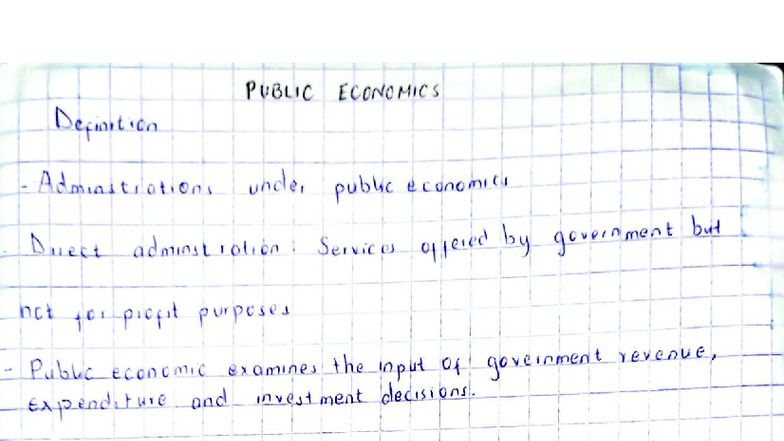 PUBLIC ECONOMICS
Definition
- Adminstrations under public economics
- Direct adminstration: Services offered by government but
not for profit purposes
- Public economic examines the input of government revenue,
expenditure and investment decisions.